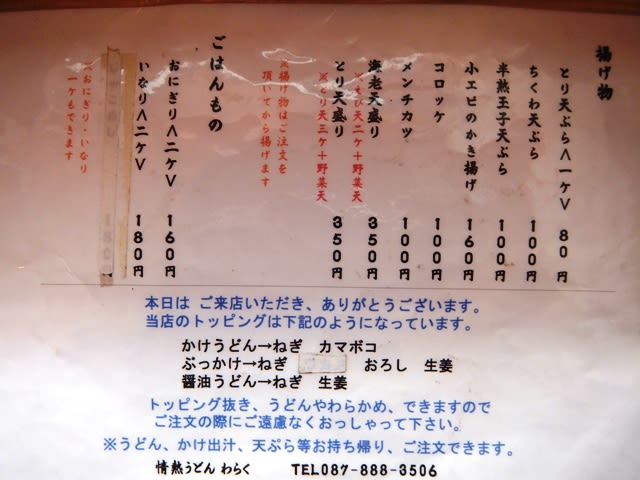 揚げ物
とり天ぷら〈一ケ〉 80円
ちくわ天ぷら 100円
半熟玉子天ぷら 100円
小エビのかき揚げ 160円
コロッケ 100円
メンチカツ 100円
海老天盛り 350円
※えび天二ケ+野菜天
とり天盛り 350円
※とり天三ケ+野菜天
※揚げ物はご注文を
頂いてから揚げます
ごはんもの
おにぎり〈二ケ〉 160円
いなり〈二ケ〉 180円
※おにぎり・いなり
一ケもできます
本日は ご来店いただき、ありがとうございます。
当店のトッピングは下記のようになっています。
かけうどん→ねぎ カマボコ
ぶっかけ→ねぎ おろし 生姜
醤油うどん→ねぎ 生姜
トッピング抜き、うどんやわらかめ、できますので
ご注文の際にご遠慮なくおっしゃって下さい。
※うどん、かけ出汁、天ぷら等お持ち帰り、ご注文できます。
情熱うどん わらく TEL087-888-3506